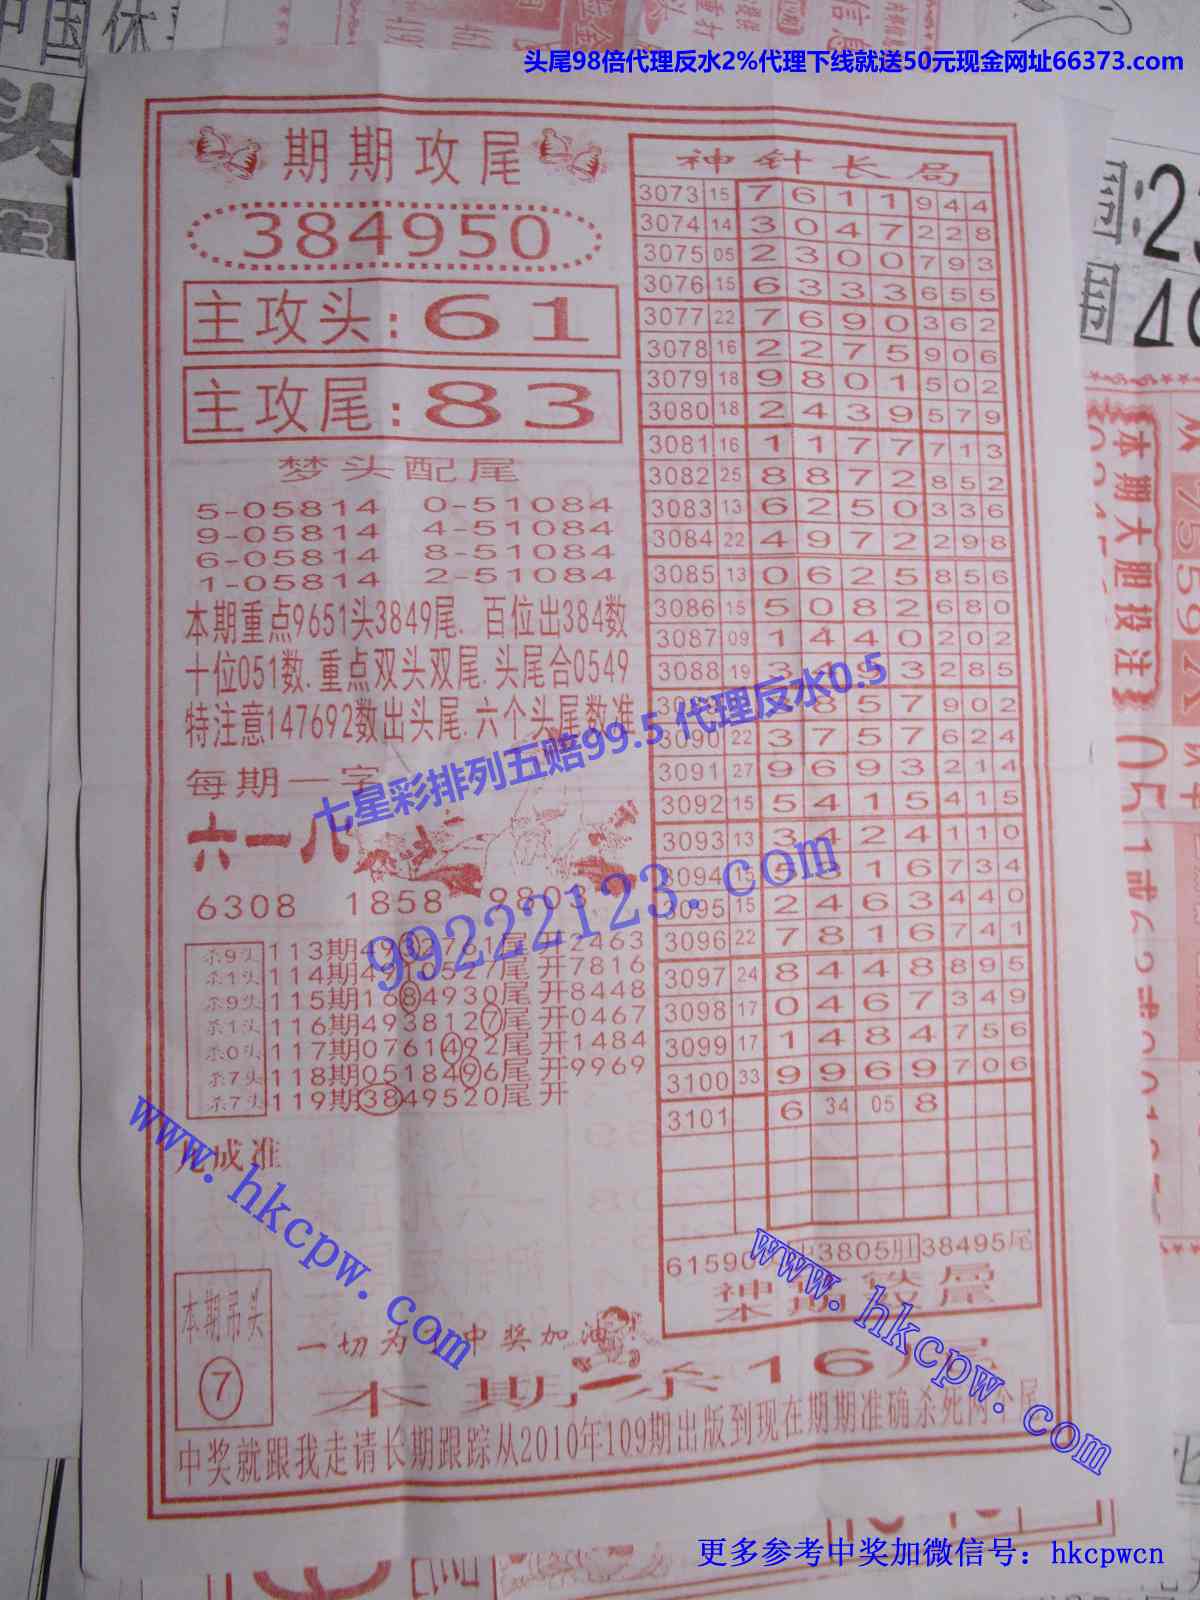 头尾98倍代理反水2%代理下线就送50元现金网址66373.com
期期攻尾
384950
主攻头:61
主攻尾:83
梦头配尾
5-05814 0-51084
9-05814 4-51084
6-05814 8-51084
1-05814 2-51084
本期重点9651头3849尾. 百位出384数
十位051数.重点双头双尾.头尾合0549
特注意147692数出头尾.六个头尾数准
每期一字
六一八
6308 1858 9803
杀9头 113期4932761尾 开2463
杀1头 114期4910527尾 开7816
杀9头 115期1684930尾 开8448
杀1头 116期4938127尾 开0467
杀0头 117期0761492尾 开1484
杀7头 118期0518496尾 开9969
杀7头 119期3849520尾 开
九成准
本期吊头
7
一切为 中奖加油!
神针长局
3073 15 7 6 1 1 9 4 4
3074 14 3 0 4 7 2 2 8
3075 05 2 3 0 0 7 9 3
3076 15 6 3 3 3 6 5 5
3077 22 7 6 9 0 3 6 2
3078 16 2 2 7 5 9 0 6
3079 18 9 8 0 1 5 0 2
3080 18 2 4 3 9 5 7 9
3081 16 1 1 7 7 7 1 3
3082 25 8 8 7 2 8 5 2
3083 13 6 2 5 0 3 3 6
3084 22 4 9 7 2 2 9 8
3085 13 0 6 2 5 8 5 6
3086 15 5 0 8 2 6 8 0
3087 09 1 4 4 0 2 0 2
3088 19 3 4 9 3 2 8 5
8 5 7 9 0 2
3090 22 3 7 5 7 6 2 4
3091 27 9 6 9 3 2 1 4
3092 15 5 4 1 5 4 1 5
3093 13 3 4 2 4 1 1 0
3094 15 5 3 1 6 7 3 4
3095 15 2 4 6 3 4 4 0
3096 22 7 8 1 6 7 4 1
3097 24 8 4 4 8 8 9 5
3098 17 0 4 6 7 3 4 9
3099 17 1 4 8 4 7 5 6
3100 33 9 9 6 9 7 0 6
3101 6 34 05 8
61590 3805肚38495尾
本期杀16尾
中奖就跟我走请长期跟踪从2010年109期出版到现在期期准确杀死两个尾
七星彩排列五赔99.5 代理反水0.5
99222123.com
www.hkcpw.com
www.hkcpw.com
本期大胆投注
更多参考中奖加微信号：hkcpwcn